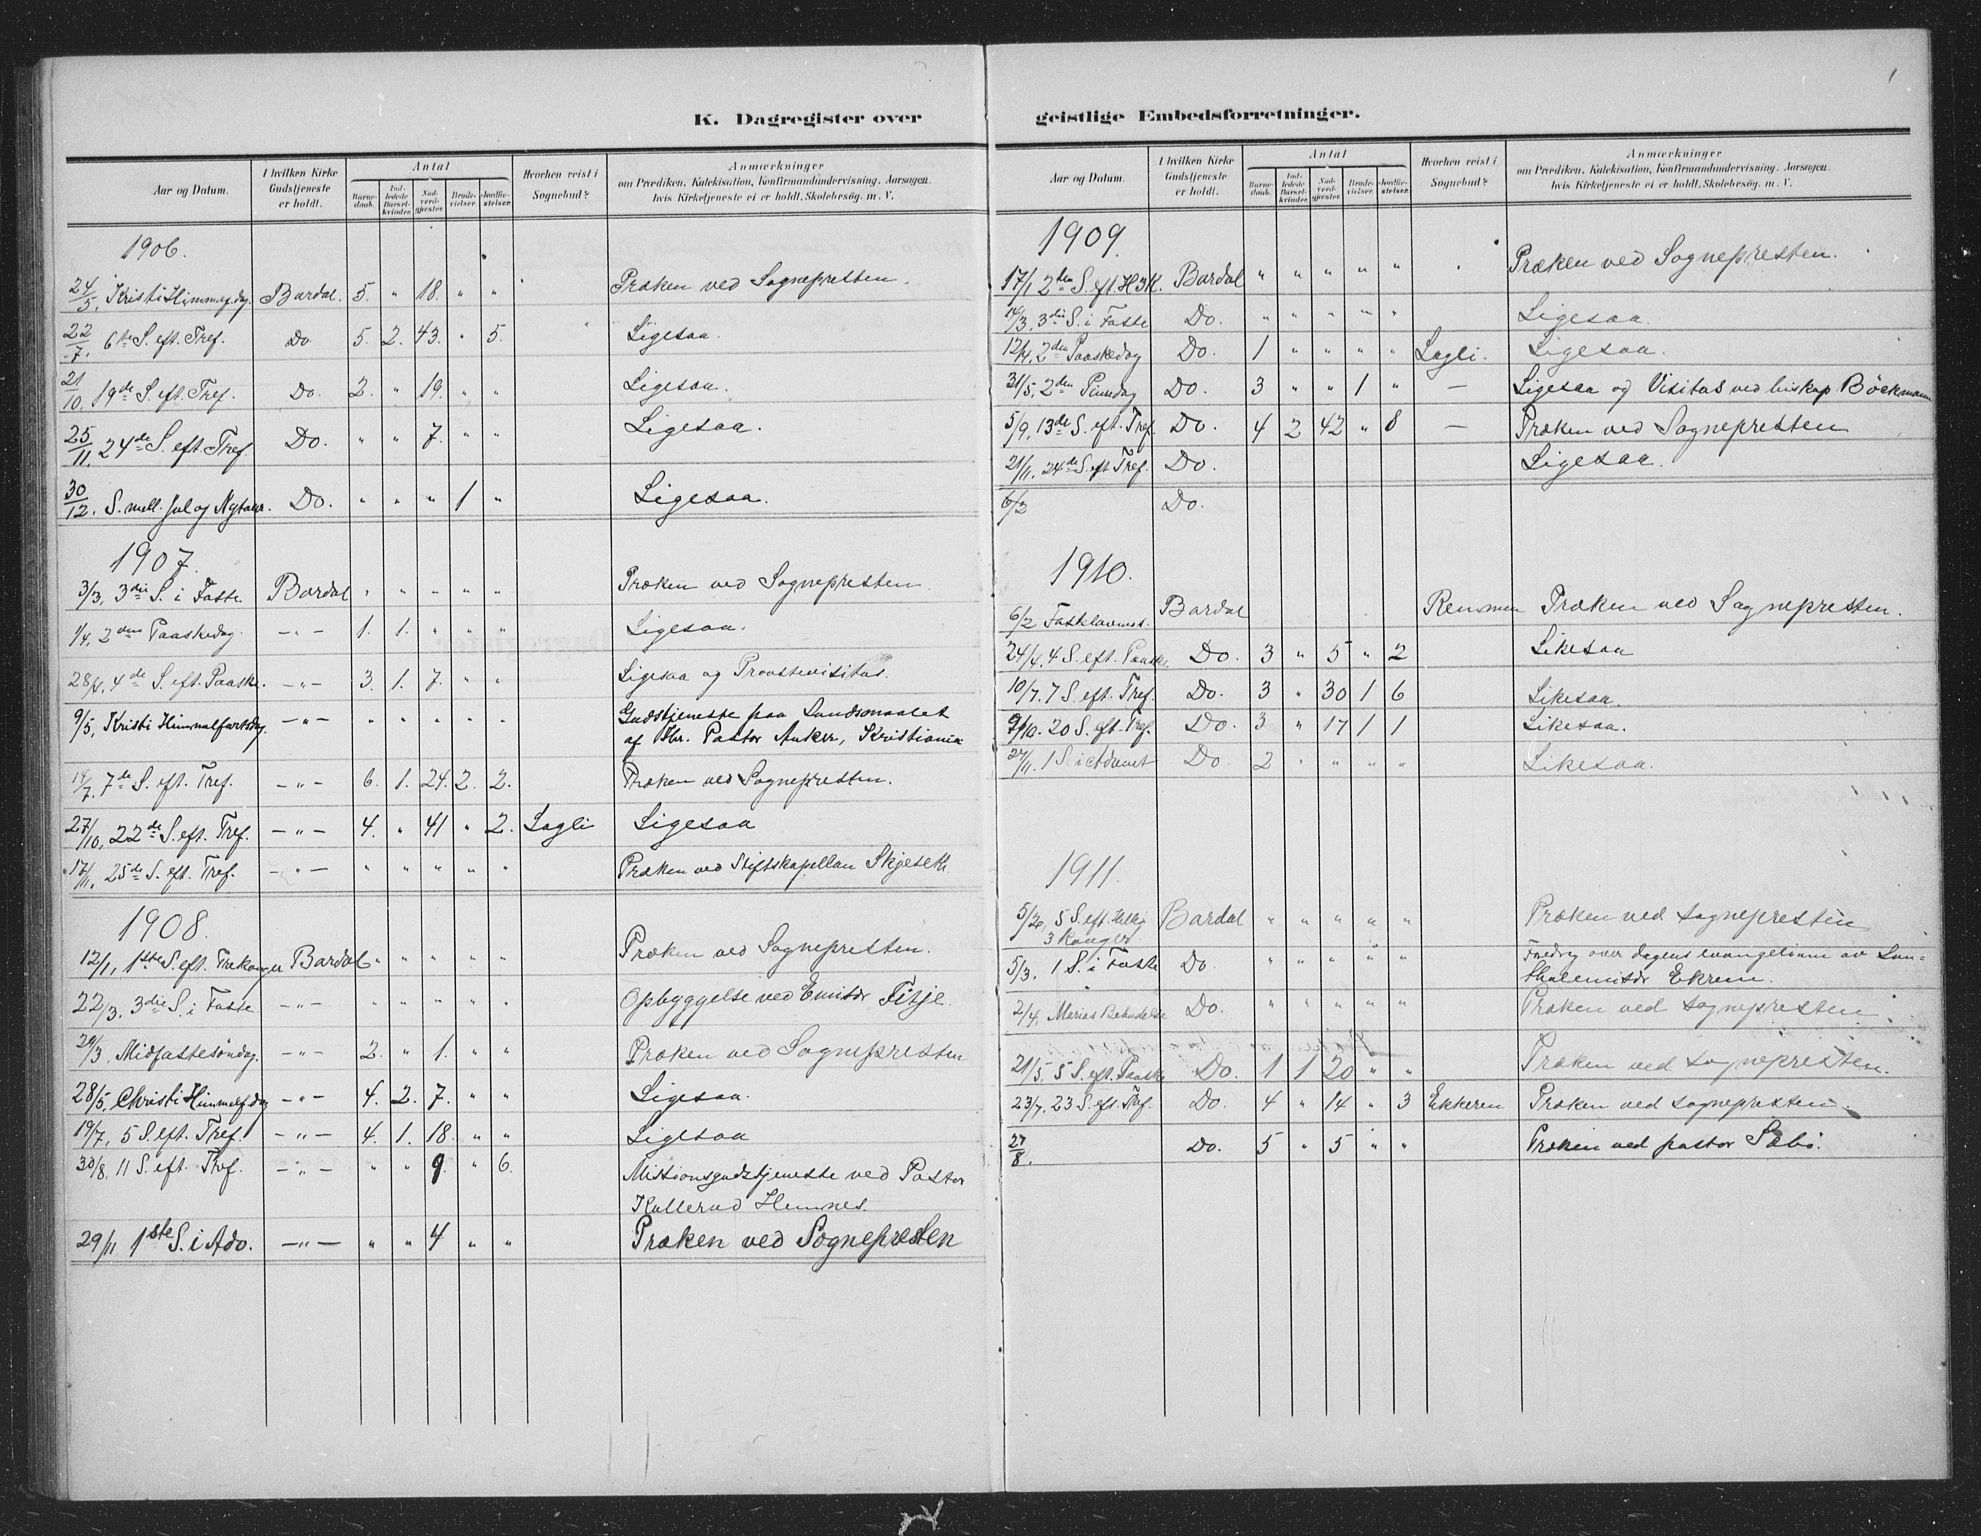 K. Dagregister over
Aar og Datum. I hvilken Kirke Gudstjeneste er holdt. Antal Barnedaab. Indledede Barselkvinder. Nadverdgjester. Brudevielser. Jordfæstelser. Hvorhen reist i Sognebud? Anmærkninger om Prædiken, Katekisation, Konfirmandundervisning, Aarsagen hvis Kirketjeneste ei er holdt, Skolebesøg. m. V.
1906.
24/5. Kristi Himmelf.dag Bardal. 5. " 18. " " Præken ved Sognepresten.
22/7. 6te S. eft. Tref. Do 5. 2. 43. " 5. Ligesaa.
21/10. 19de S. eft. Tref. Do. 2. " 19. " " Ligesaa.
25/11. 24de S. eft. Tref. Do. " " 7. " " Ligesaa.
30/12. S. mell. Jul og Nytaar. Do. " " " 1 " Ligesaa.
1907.
3/3. 3die S. i Faste Bardal " " " " " Præken ved Sognepresten
1/4. 2den Paaskedag. -"- 1. 1. " " " Ligesaa.
28/4. 4de S. eft. Paaske. -"- 3. 1. 7. " " Ligesaa og Provstevisitas.
9/5. Kristi Himmelfartsdag -"- " " " " " Gudstjeneste paa Landsmaalet
af Hr. Pastor Anker, Kristiania
14/7. 7de S. eft. Tref. -"- 6. 1. 24. 2. 2. Præken ved Sognepresten.
27/10. 22de S. eft. Tref. -"- 4. " 41 " 2. Lagli Ligesaa
17/11. 25de S. eft. Tref. -"- " " " " " Præken ved Stiftskapellan Skjeseth
1908.
12/1. 1ste S. eft. Trekonger Bardal " " " " " Præken ved Sognepresten.
22/3. 3die S. i Faste -"- " " " " " Opbyggelse ved Emisær Fitje.
29/3. Midfastesøndag. -"- 2. " 1. " " Præken ved Sognepresten
28/5. Christi Himmelf.dag -"- 4. 2. 7. " " Ligesaa.
19/7. 5 S. eft. Tref. -"- 4. 1. 18. " " Ligesaa
30/8. 11 S. eft. Tref. -"- " " 9. " 6. Missionsgudstjeneste ved Pastor
Kullerud Hemnes.
29/11 1ste S. i Adv. -"- " " 4 " " Præken ved Sognepresten
geistlige Embedsforretninger.
Aar og Datum. I hvilken Kirke Gudstjeneste er holdt. Antal Barnedaab. Indledede Barselkvinder. Nadverdgjester. Brudevielser. Jordfæstelser. Hvorhen reist i Sognebud? Anmærkninger om Prædiken, Katekisation, Konfirmandundervisning, Aarsagen hvis Kirketjeneste ei er holdt, Skolebesøg. m. V.
1909.
17/1 2den S. eft. H3K. Bardal " " " " " Præken ved Sognepresten.
14/3. 3die S. i Faste Do. " " " " " Ligesaa.
12/4. 2den Paaskedag Do. 1 " " " " Lagli. Ligesaa.
31/5. 2den Pinsdag Do. 3 " " 1 " - Ligesaa og Visitas ved biskop Böckmann
5/9. 13de S. eft. Tref. Do. 4 2 42 " 8 - Præken ved Sognepresten
21/11. 24de S. eft. Tref. Do. Ligesaa.
6/2 Do.
1910.
6/2 Fastelavnss. Bardal Præken ved Sognepresten.
24/4. 4 S. eft. Paaske Do. 3 " 5 " 2 Likesaa
10/7. 7 S. eft. Tref. Do. 3 " 30 1 6 Likesaa.
9/10. 20 S. eft. Tref. Do. 3 " 17 1 1 Likesaa.
27/11. 1 S. i Advent Do. 2 " " " " Likesaa.
1911.
5/2. 5 S. eft. Hellig 3 Konger Bardal " " " " " Præken ved sognepresten
5/3. 1 S. i Faste Do. " " " " " Foredrag over dagens evangelium av
Ekrem.
2/4. Marias Bebudelse Do. " " " " " Præken ved sognepresten.
21/5. 5 S. eft. Paaske Do. 1 1 20 " " Præken ved sognepresten.
23/7. 23 S. eft. Tref. Do. 4 " 14 " 3 Ekkeren Præken ved sognepresten.
27/8. Do. 5 " 5 " " Præken ved pastor Sæbø.